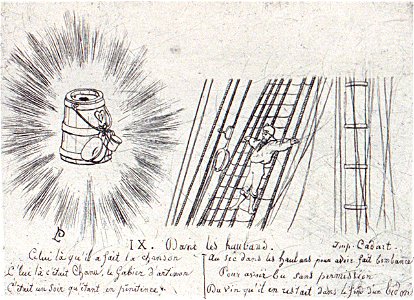 IX. Dans les haubans. Imp. Cadart.
Celui là qu'il a fait la chanson
C'lui là c'était Chanu, le Gabier d'artimon
C'était un soir qu'étant en pénitence
Au sec dans les haubans pour avoir fait bombance
Pour avoir bu sans permission
Du vin qu'il en restait dans le fond d'un bidon